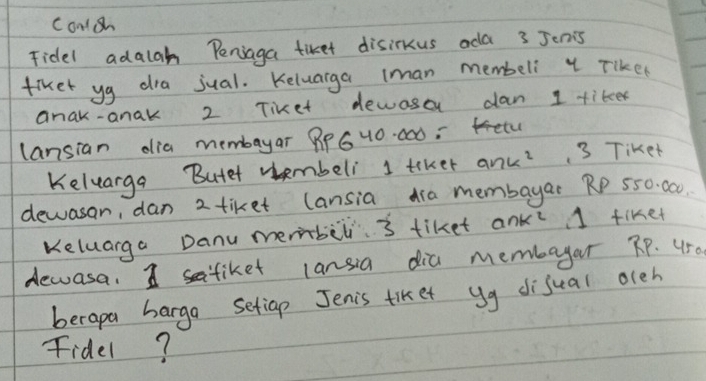 Contoh
Fidel adalah Penjaga tiket disirkus ada 3 Jenis
tiket yg dia jual. Keluarga Iman membeli 4 Tiket
anak-anak 2 Tiket dewasa dan 1 tiket
lansian dia membayar RP 640.000;
Keluarga Butet membeli 1 tiket ank², 3 Tiket
dewasan, dan 2 tiket lansia dia membayar RP 550.000.
Keluarga Danu membeli 3 tiket ank² 1 tiket
dewasa. 1 tiket lansia dia membayar RP. 450
berapa harga setiap Jenis tiket yg dijual oleh
Fidel ?